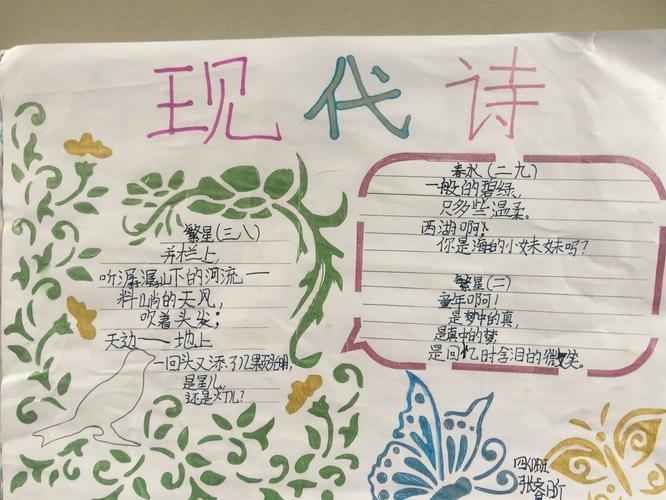 现代诗
繁星(三八)
井栏上,
听潺潺山下的河流一
料峭的天风,
吹着头发;
天边——地上
一回头又添了几颗光明,
是星儿,
还是灯儿?
春水(二九)
一般的碧绿,
只多些温柔。
西湖啊!
你是海的小妹妹吗?
繁星(二)
童年啊!
是梦中的真,
是真中的梦
是回忆时含泪的微笑。